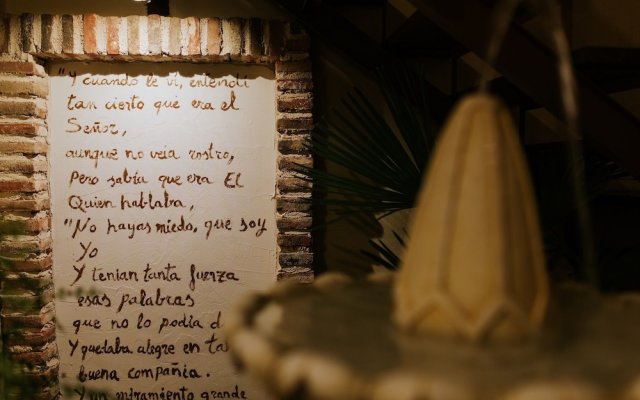 "Y cuando le vi, entendí
tan cierto que era el
Señor,
aunque no veia rostro,
Pero sabía que era El
Quien hablaba,
"No hayas miedo, que soy
Yo
Y tenían tanta fuerza
esas palabras
que no lo podía
Y quedaba alegre en
buena compañía.
Y un miramiento grande